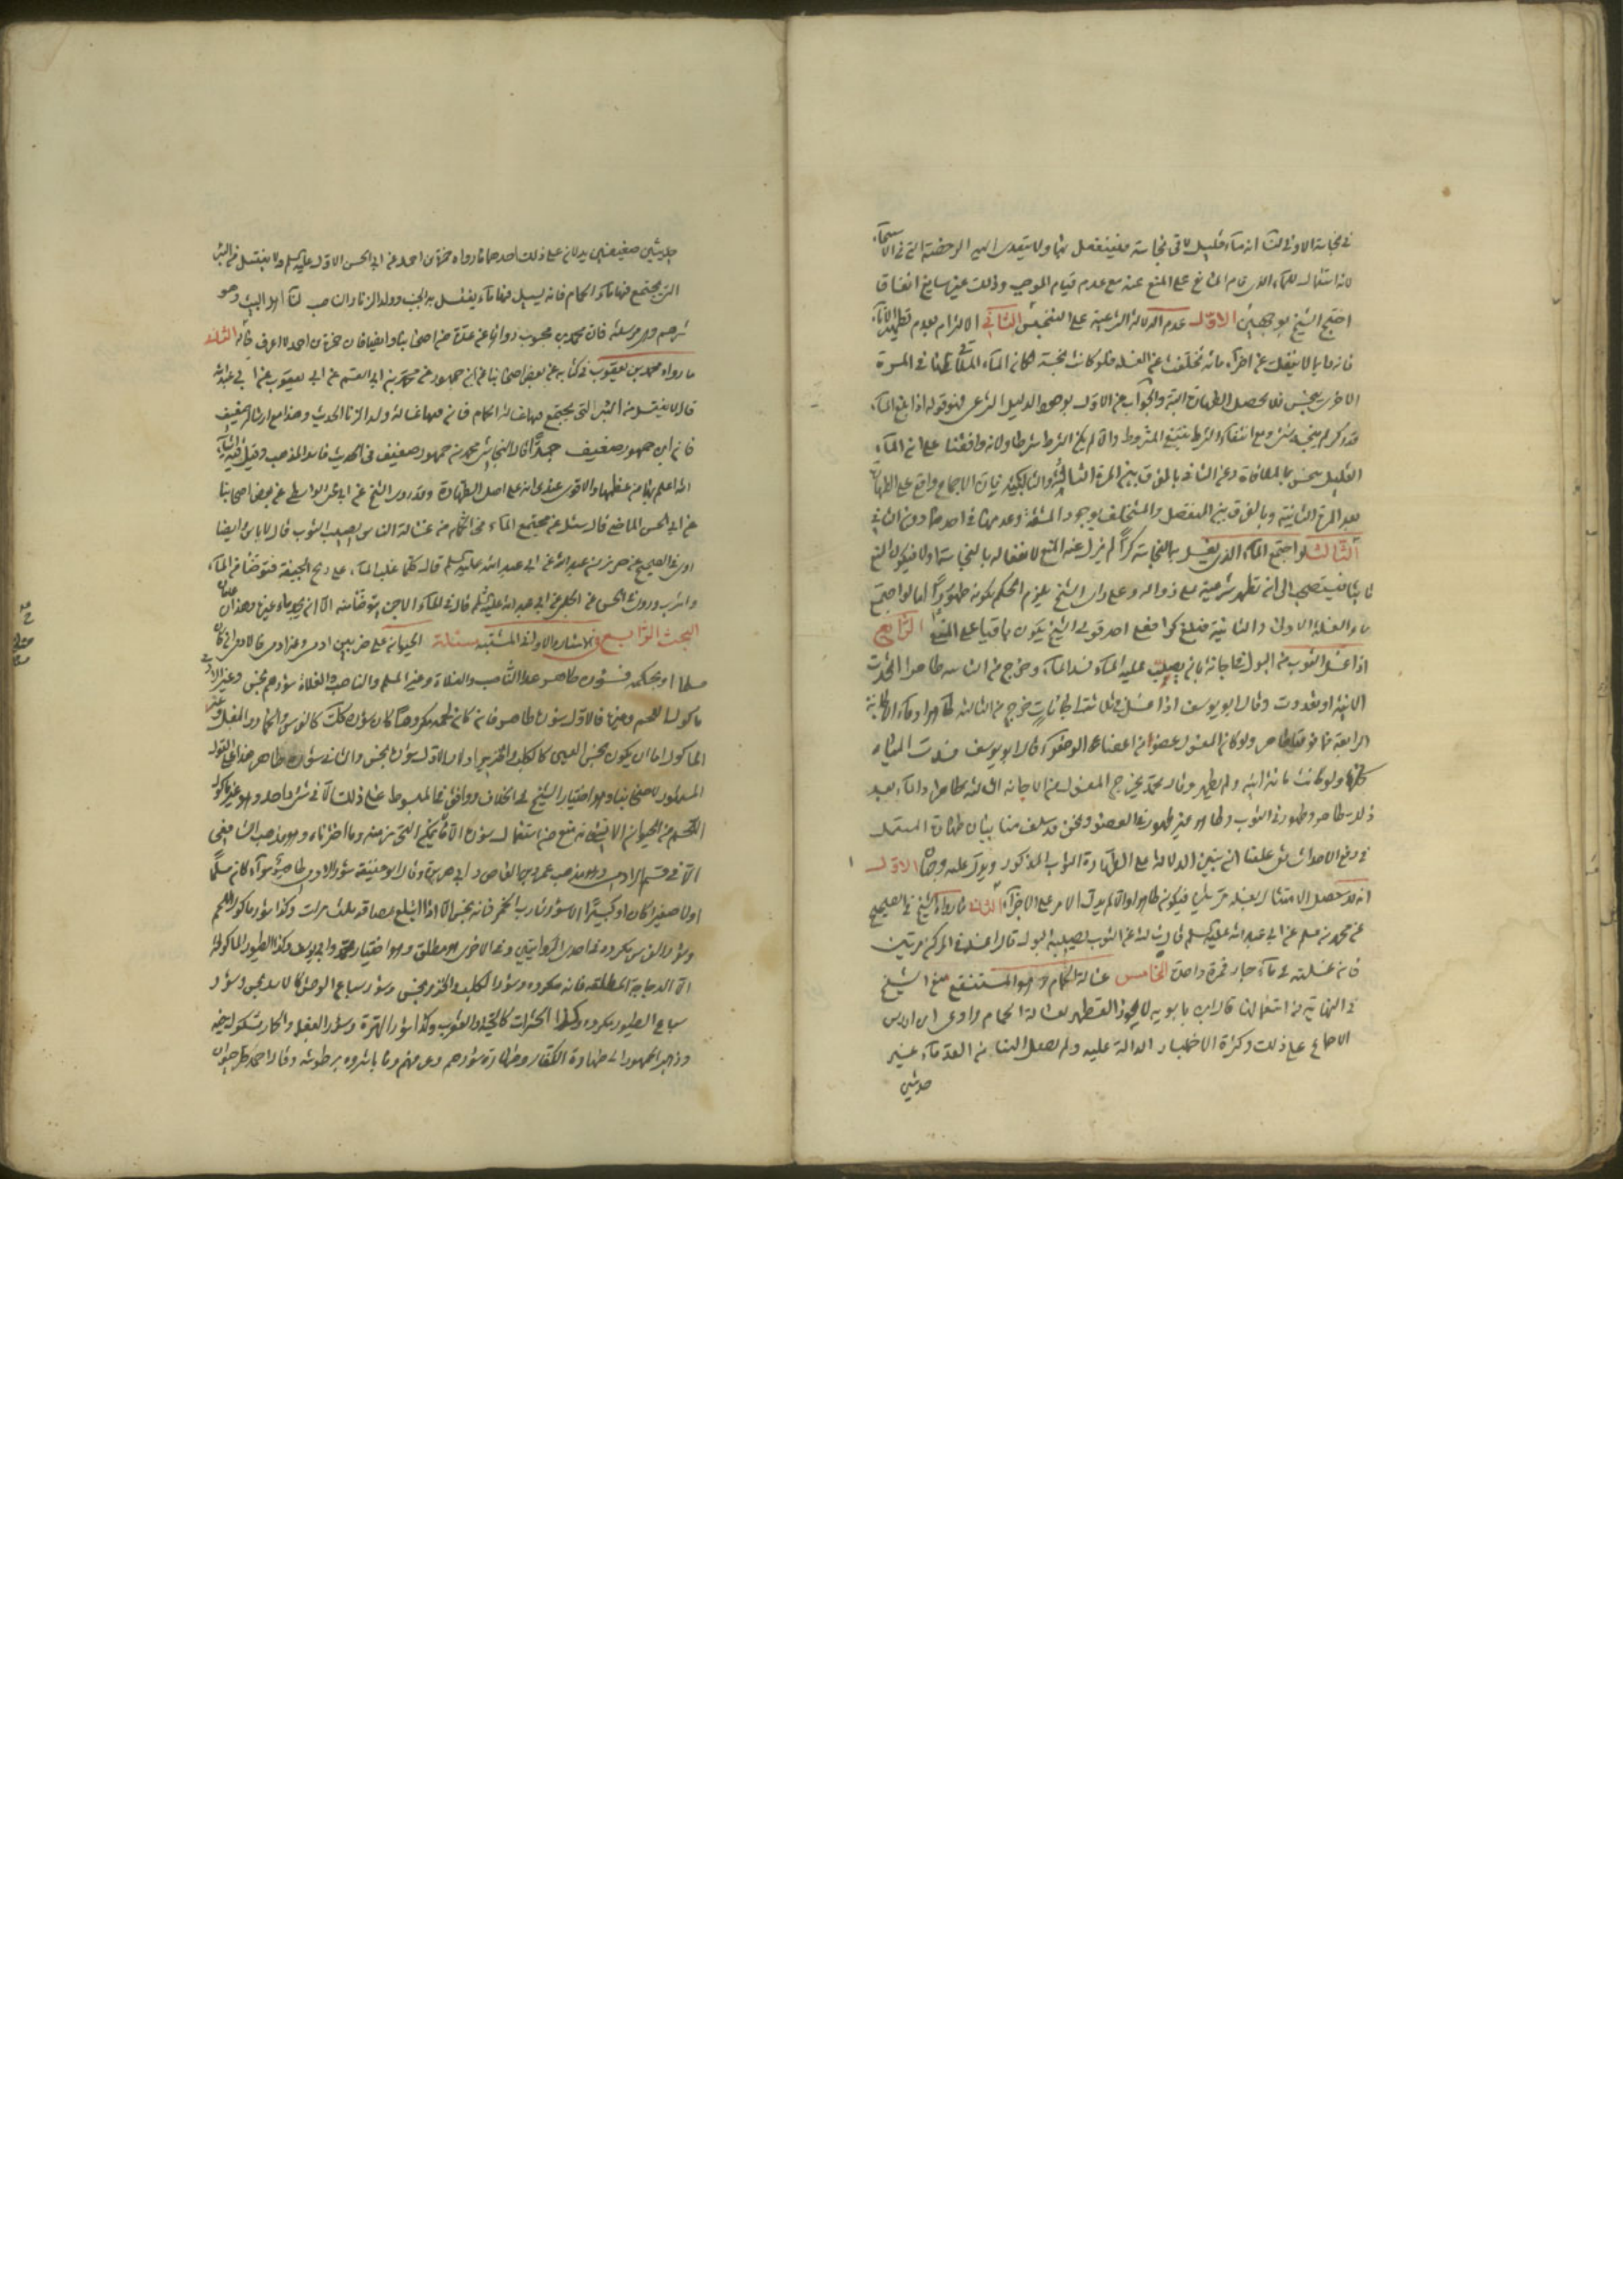 في نجاسة الاولى لنا انه ماء قليل لاقى نجاسة فينفعل بها ولا يتعدى اليه الرخصة التي في الاستنجاء
لانه استعمال للماء الذي قام المانع على المنع عنه مع عدم قيام الموجب وذلك غير سايغ اتفاقا
احتج الشيخ بوجهين الاول عدم الدلالة الشرعية على التنجيس الثاني الالتزام بعدم تطهير الاناء
فانه ما بالا ينفك عن اجزاء مائه تخلفت عن الغسله فلو كانت نجسة لكان الماء الملاقي لها في المرة
الاخرى ينجس فلا يحصل الطهارة البتة والجواب عن الاول بوجود الدليل الشرعي فهو قوله اذا بلغ الماء
قدر كر لم ينجسه شئ ومع انتفاء الشرط ينتفي المشروط والا لم يكن الشرط شرطا ولانه وافقنا على ان الماء
القليل ينجس بالملاقاة وعن الثاني بالفرق بين المرة الثالثة والثانية فان الاجماع واقع على الطهارة
بعد المرة الثانية وبالفرق بين المنفصل والمتخلف بوجود المشقة وعدمها في احدهما دون الثاني
الثالث لو اجتمع الماء الذي يغسل به النجاسة كرا لم يزل عنه المنع لانفعاله بالنجاسة اولا فيكون المنع
ثابتا فيستصحب الى ان تظهر شرعية على زواله وعلى راي الشيخ يلزم الحكم بكونه طهورا اما لو اجتمع
ماء الغسلة الاولى والثانية فبلغ كرا فعلى احد قولي الشيخ يكون باقيا على المنع الرابع
اذا غسل الثوب من البول في اجانة بان يصب عليه الماء فسد الماء وخرج من الثانية طاهرا اتحدت
الانية او تعددت وقال ابو يوسف اذا غسل في ثلاث اجانات خرج من الثالثة طاهرا وماء الاجانة
الرابعة فما فوقه طاهر ولو كان المغسول عضوا من اعضاء الوضوء قال ابو يوسف فسدت المياه
كلها ولو كانت مائة انية ولم يطهر وقال محمد يخرج المغسول من الاجانة الثالثة طاهرا والماء بعد
ذلك طاهر وطهور في الثوب وطاهر غير طهور في العضو ونحن قد سلف منا بيان طهارة المستعمل
في رفع الاحداث بقي علينا ان نبين الدلالة على الطهارة الثوب المذكور ويدل عليه وجهان الاول
انه قد حصل الامتثال بغسله مرتين فيكون طاهرا والا لم يدل الامر على الاجزاء الثاني ما رواه الشيخ في الصحيح
عن محمد بن مسلم عن ابي عبد الله عليه السلم قال سالته عن الثوب يصيبه البول قال اغسله في المركن مرتين
فان غسلته في ماء جار فمرة واحدة الخامس غسالة الحمام وهو المستنقع منع الشيخ
في النهاية من استعمالها قال ابن بابويه لا يجوز التطهر بغسالة الحمام وادعى ابن ادريس
الاجماع على ذلك وكثرة الاخبار الدالة عليه ولم يصل الينا من القدماء غير
حديثين
حديثين ضعيفين يدلان على ذلك احدهما ما رواه حمزة بن احمد عن ابي الحسن الاول عليه السلم ولا يغتسل من البئر
التي يجتمع فيها ماء الحمام فانه يسيل فيها ماء يغتسل به الجنب وولد الزنا والناصب لنا اهل البيت وهو
شرهم وهي مرسلة فان محمد بن محبوب رواها عن عدة من اصحابنا وايضا فان حمزة بن احمد لا اعرف حاله الثاني
ما رواه محمد بن يعقوب في كتابه عن بعض اصحابنا عن ابن جمهور عن محمد بن ابي القسم عن ابن ابي يعفور عن ابي عبد الله
قال لا يغتسل من البئر التي يجتمع فيها غسالة الحمام فان فيها غسالة ولد الزنا الحديث وهذا مع ارساله ضعيف
فان ابن جمهور ضعيف جدا قال النجاشي محمد بن جمهور ضعيف في الحديث فاسد المذهب وقيل فيه اشياء
الله اعلم بها من عظمها والاقوى عندي انه على اصل الطهارة وقد روى الشيخ عن ابي يحيى الواسطي عن بعض اصحابنا
عن ابي الحسن الماضي قال سئل عن مجتمع الماء في الحمام من غسالة الناس يصيب الثوب قال لا باس وايضا
روى في الصحيح عن حريز بن عبد الله عن ابي عبد الله عليه السلم قال كلما غلب الماء على ريح الجيفة فتوضأ من الماء
واشرب وروى في الحسن عن الحلبي عن ابي عبد الله عليه السلم قال في الماء الاجن يتوضأ منه الا ان يجد ماء غيره وهذان عامان
البحث الرابع في الاسئار والاواني المشتبه مسئلة الحيوان على ضربين ادمي وغير ادمي فالادمي ان كان
مسلما او بحكمه فسؤره طاهر عدا الناصب والغلاة وغير المسلم والناصب والغلاة سؤرهم نجس وغير الادمي
ماكول اللحم وغيره فالاول سؤره طاهر فان كان لحمه مكروها كان سؤره كذلك كالفرس والحمار والبغل وغير
الماكول اما ان يكون نجس العين كالكلب والخنزير اولا والاول سؤره نجس والثاني سؤره طاهر هذا هو القول
المشهور لاصحابنا وهو اختيار الشيخ في الخلاف ووافق في المبسوط على ذلك الا في شئ واحد وهو غير ماكول
اللحم من الحيوان الانسي فانه منع من استعمال سؤره الا ما لا يمكن التحرز منه وما اخترناه وهو مذهب الشافعي
الا في قسم الادمي وهو مذهب عمرو بن العاص وابي هريرة وقال ابو حنيفة سؤر الادمي طاهر سواء كان مسلما
اولا صغيرا كان او كبيرا الا سؤر شارب الخمر فانه نجس الا اذا ابتلع بصاقه ثلث مرات وكذا سؤر ماكول اللحم
وسؤر الفرس مكروه في احدى الروايتين وفي الاخرى مطلق وهو اختيار محمد وابي يوسف وكذا الطيور الماكولة
الا الدجاجة المطلقة فانه مكروه وسؤر الكلب والخنزير نجس وسؤر سباع الوحش كالاسد نجس وسؤر
سباع الطيور مكروه وكذا الحشرات كالحية والعقرب وكذا سؤر الهرة وسؤر البغل والحمار مشكوك فيه
وذهب الجمهور الى طهارة الكفار وطهارة سؤرهم وعرقهم وما باشروه برطوبته وقال احمد كل حيوان